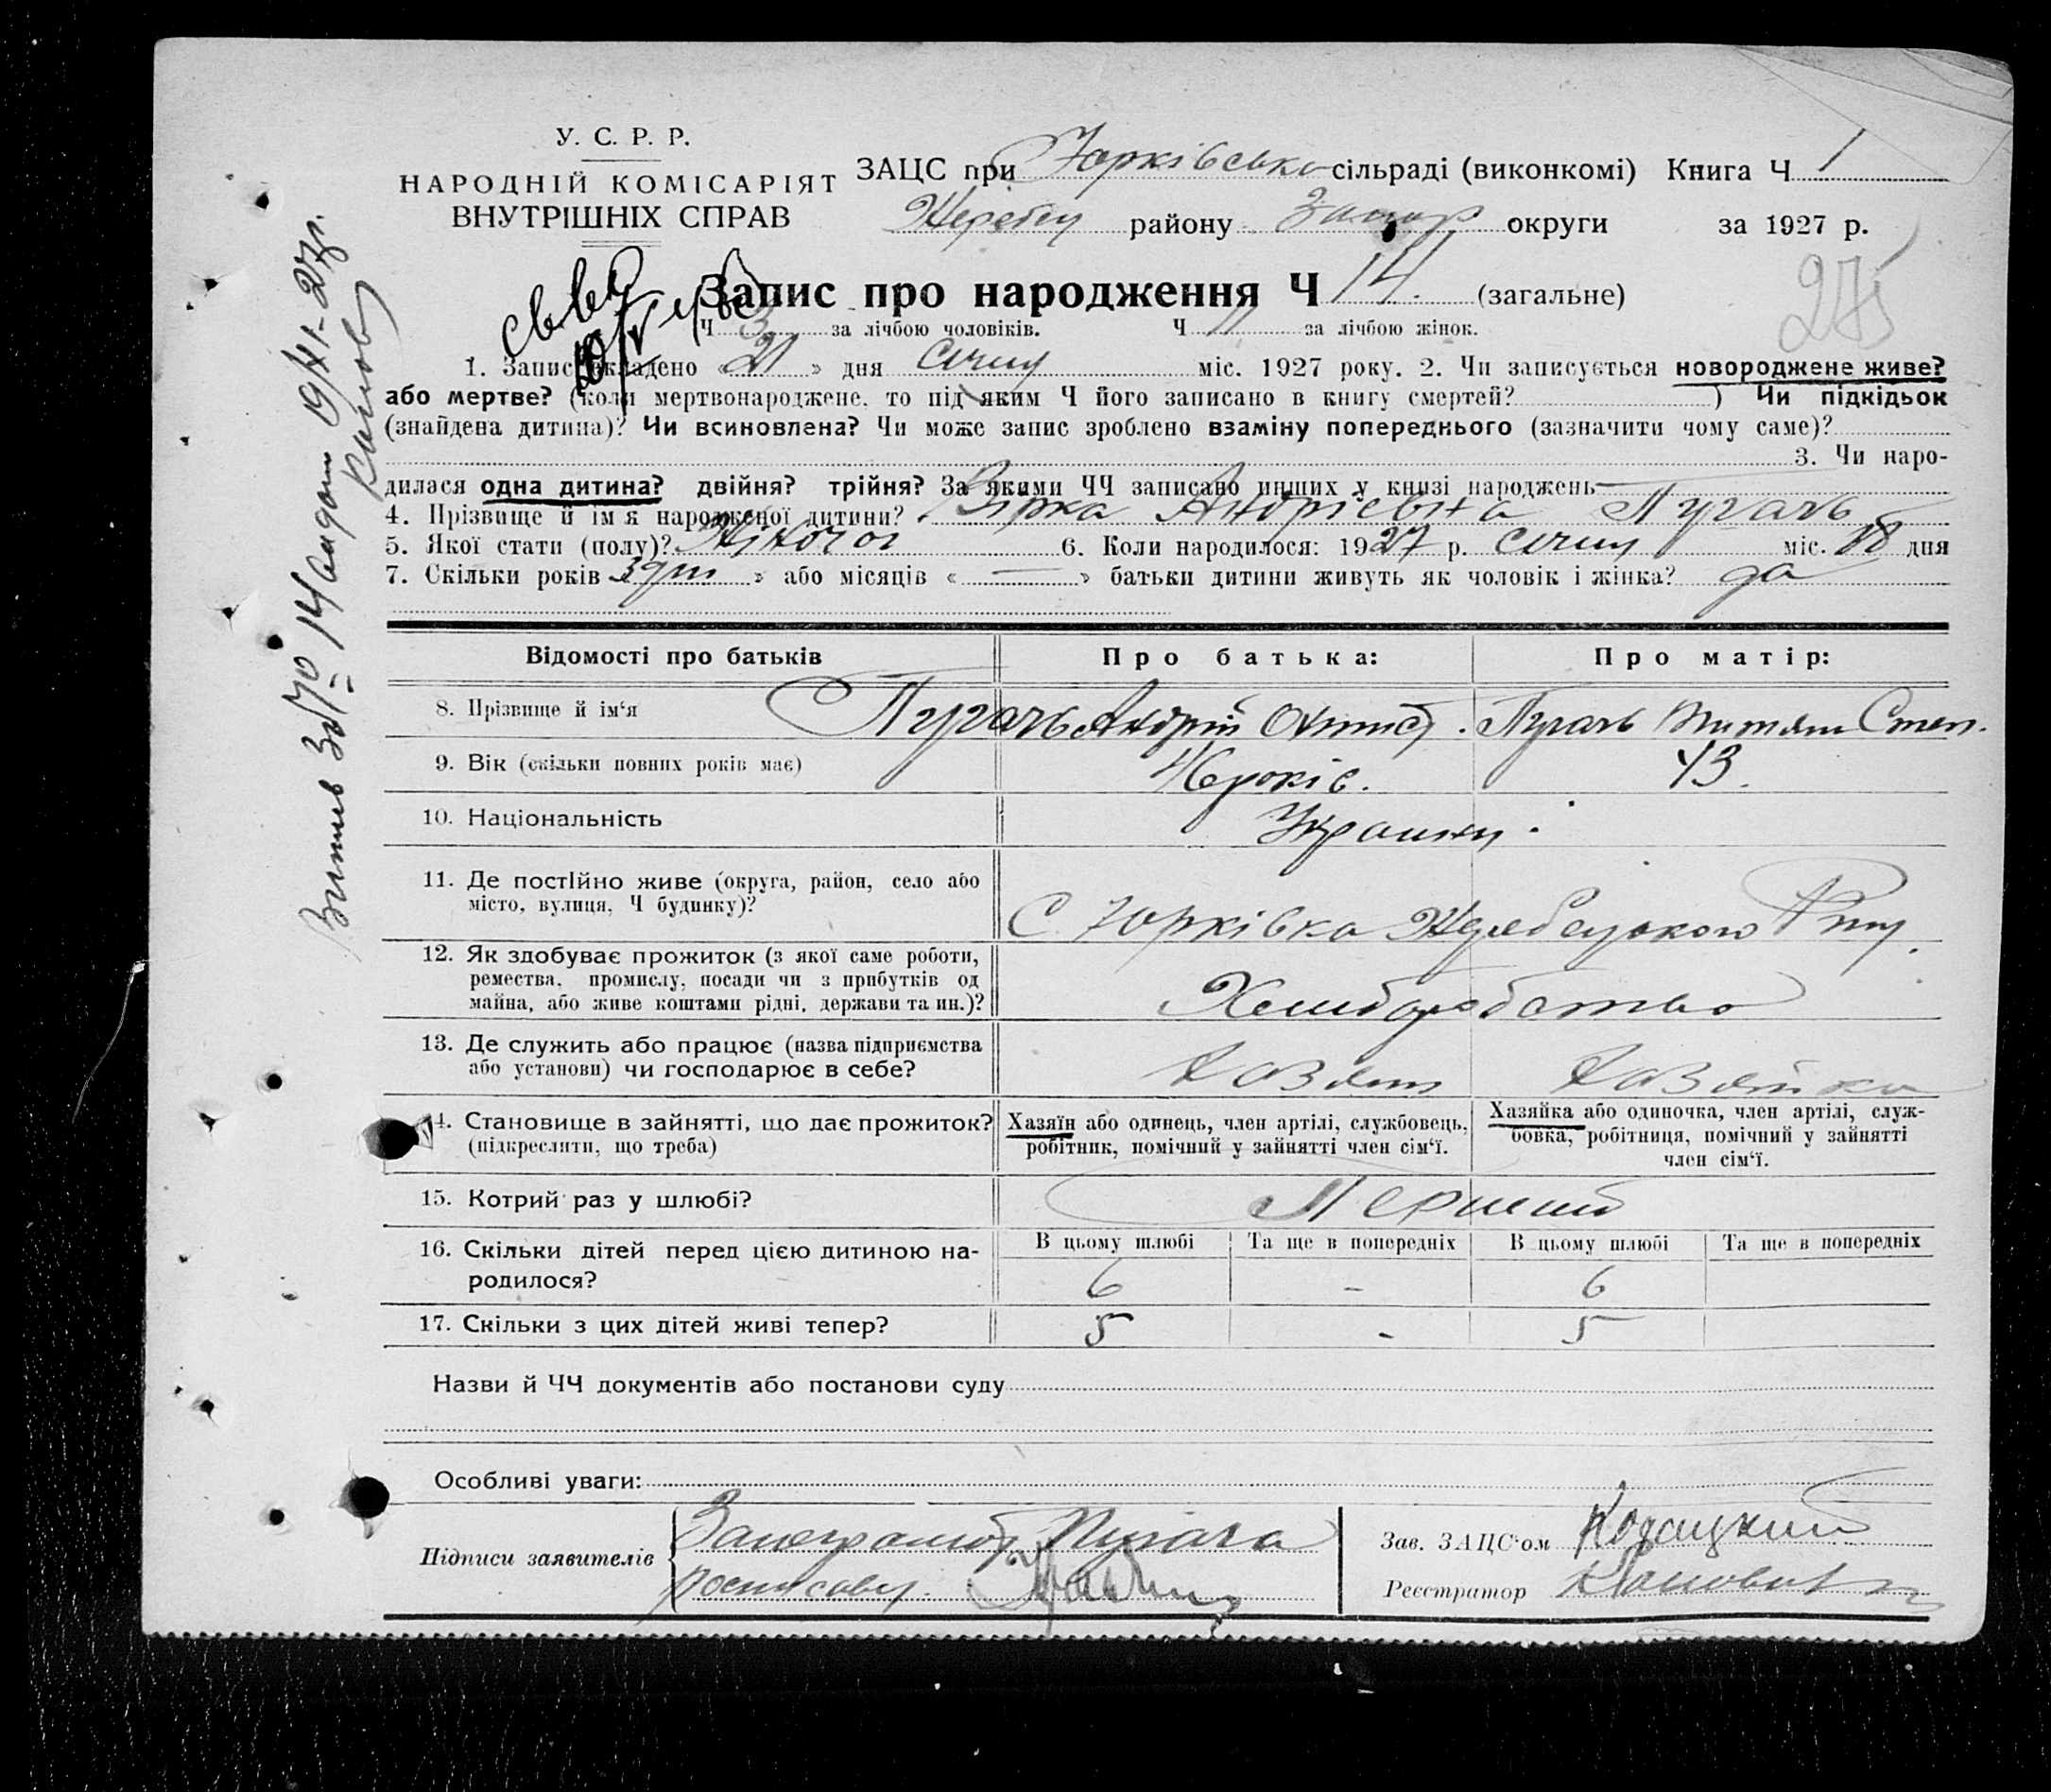 У. С. Р. Р.
НАРОДНІЙ КОМІСАРІЯТ
ВНУТРІШНІХ СПРАВ
ЗАЦС при Юрківсько сільраді (виконкомі) Книга Ч 1
району округи за 1927 р.
275
Запис про народження Ч 14. (загальне)
Ч 3 за лічбою чоловіків. Ч 11 за лічбою жінок.
1. Запис складено « 21 » дня міс. 1927 року. 2. Чи записується новороджене живе?
або мертве? (коли мертвонароджене, то під яким Ч його записано в книгу смертей? ) Чи підкідьок
(знайдена дитина)? Чи всиновлена? Чи може запис зроблено взаміну попереднього (зазначити чому саме)?
3. Чи наро-
дилася одна дитина? двійня? трійня? За якими ЧЧ записано инших у книзі народжень —
4. Прізвище й ім'я народженої дитини? Вірка Андрієвна Пугачь
5. Якої стати (полу)? Жіночої 6. Коли народилося: 1927 р. міс. 18 дня
7. Скільки років » або місяців « — » батьки дитини живуть як чоловік і жінка? да
Відомості про батьків
Про батька:
Про матір:
8. Прізвище й ім‘я Пугачь Андрій Пугачь Степ.
9. Вік (скільки повних років має) років. 43.
10. Національність
11. Де постійно живе (округа, район, село або
місто, вулиця, Ч будинку)?
С. Юрківка Жеребецького
12. Як здобуває прожиток (з якої саме роботи,
ремества, промислу, посади чи з прибутків од
майна, або живе коштами рідні, держави та ин.)?
Хлиборобство
13. Де служить або працює (назва підприємства
або установи) чи господарює в себе?
Хазяїн Хазяйка
14. Становище в зайнятті, що дає прожиток?
(підкреслити, що треба)
Хазяїн або одинець, член артілі, службовець,
робітник, помічний у зайнятті член сім‘ї.
Хазяйка або одиночка, член артілі, служ-
бовка, робітниця, помічний у зайнятті
член сім‘ї.
15. Котрий раз у шлюбі? Перший
16. Скільки дітей перед цією дитиною на-
родилося?
В цьому шлюбі Та ще в попередніх В цьому шлюбі Та ще в попередніх
6 - 6
17. Скільки з цих дітей живі тепер? 5 - 5
Назви й ЧЧ документів або постанови суду
Особливі уваги:
Підписи заявителів
Пугача
Зав. ЗАЦС‘ом Козацкий
Реєстратор